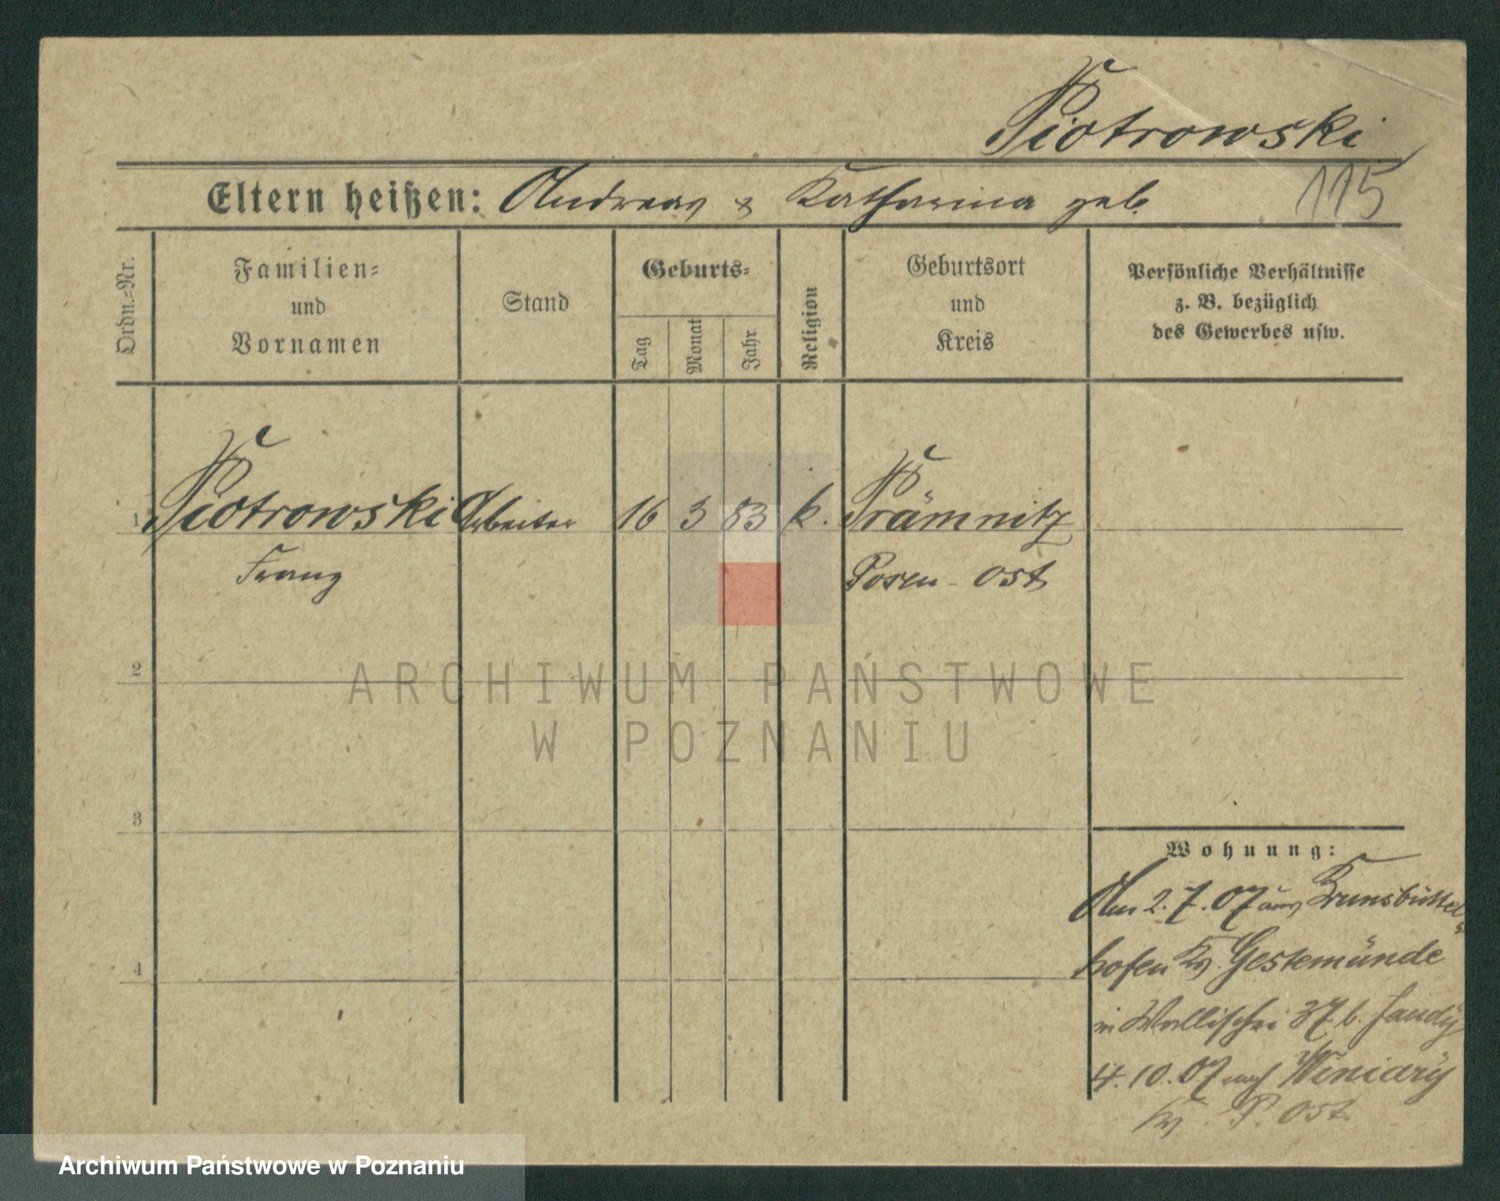 Piotrowski
Eltern heißen: Andreas & Katharina geb. 115
Ordn.=Nr.
Familien=
und
Vornamen
Stand
Geburts=
Tag
Monat
Jahr
Religion
Geburtsort
und
Kreis
Persönliche Verhältnisse
z. B. bezüglich
des Gewerbes usw.
1 Piotrowski Arbeiter 16 3 83 k. Prämnitz
Franz Posen - Ost
2
ARCHIWUM PAŃSTWOWE
W POZNANIU
3
Wohnung:
Am 2.7.07 aus Brunsbüttel
hofen Kr. Gestemünde
4
in Wallischei 37 b.
4.10.07 nach Winiary
Kr. P. Ost.
Archiwum Państwowe w Poznaniu